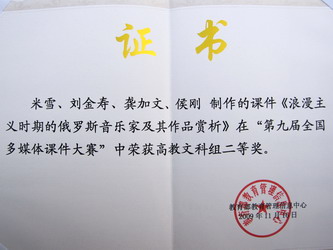 证书
米雪、刘金寿、龚加文、侯刚 制作的课件《浪漫主
义时期的俄罗斯音乐家及其作品赏析》在“第九届全国
多媒体课件大赛”中荣获高教文科组二等奖。
教育部教育管理信息中心
2009年11月